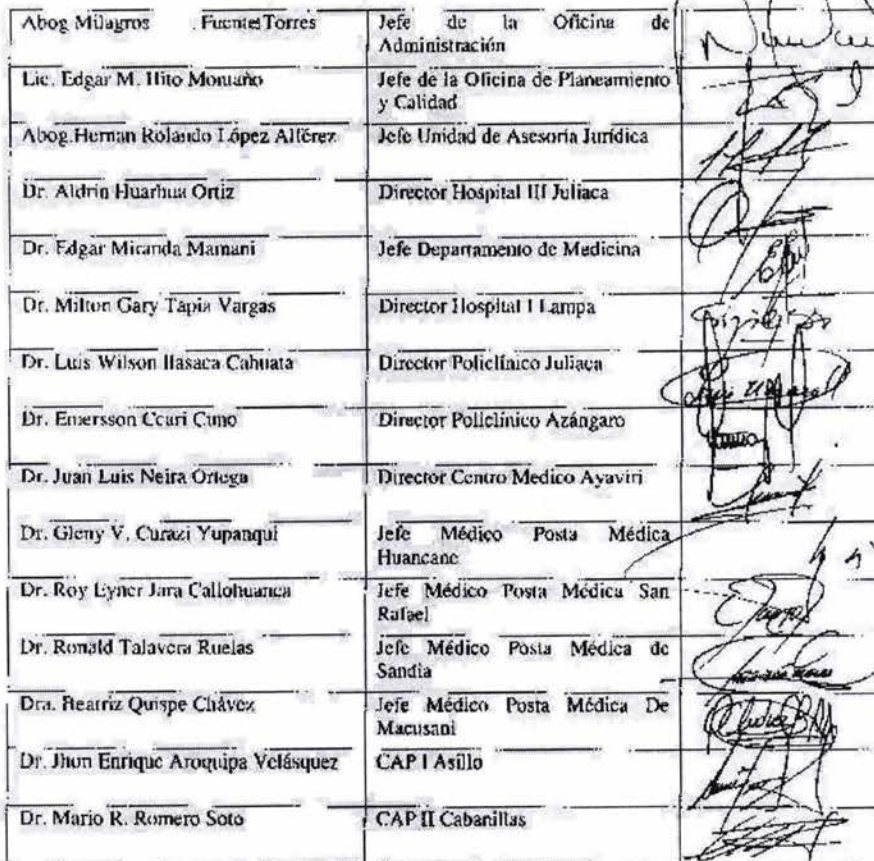 Abog Milagros Fuentes Torres
Jefe de la Oficina de
Administración
Lic. Edgar M. Hito Montaño
Jefe de la Oficina de Planeamiento
y Calidad
Abog.Hernan Rolando López Alférez
Jefe Unidad de Asesoria Jurídica
Dr. Aldrin Huarhua Ortiz
Director Hospital III Juliaca
Dr. Edgar Miranda Mamani
Jefe Departamento de Medicina
Dr. Milton Gary Tapia Vargas
Director Hospital I Lampa
Dr. Luis Wilson Ilasaca Cahuata
Director Policlínico Juliaca
Dr. Emersson Ccari Cuno
Director Policlínico Azángaro
Dr. Juan Luis Neira Ortega
Director Centro Medico Ayaviri
Dr. Gleny V. Curazi Yupanqui
Jefe Médico Posta Médica
Huancane
Dr. Roy Lyner Jara Callohuanca
Jefe Médico Posta Médica San
Rafael
Dr. Ronald Talavera Ruelas
Jefe Médico Posta Médica de
Sandia
Dra. Beatriz Quispe Chávez
Jefe Médico Posta Médica De
Macusani
Dr. Jhon Enrique Aroquipa Velásquez
CAP I Asillo
Dr. Mario R. Romero Soto
CAP II Cabanillas